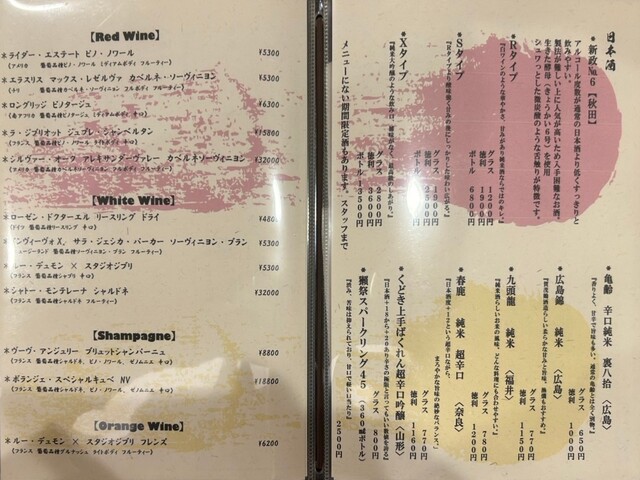 【Red Wine】
＊ライダー・エステート ピノ・ノワール ¥5300
(アメリカ 葡萄品種ピノ・ノワール ミディアムボディ フルーティー)
＊エラスリス マックス・レゼルヴァ カベルネ・ソーヴィニヨン ¥5300
＊ロングリッジ ピノタージュ ¥6300
(南アフリカ 葡萄品種ピノタージュ ミディアムボディ 辛口)
＊ラ・ジブリオット ジュブレ・シャンベルタン ¥15800
(フランス 葡萄品種ピノ・ノワール ライトボディ 辛口)
＊シルヴァー・オーク アレキサンダーヴァレー カベルネソーヴィニヨン ¥32000
【White Wine】
＊ローゼン・ドクターエル リースリング ドライ ¥4800
(ドイツ 葡萄品種リースリング 辛口)
＊インヴィーヴォX, サラ・ジェシカ・パーカー ソーヴィニヨン・ブラン ¥5300
＊ルー・デュモン × スタジオジブリ ¥5300
(フランス 葡萄品種シャブリ 辛口)
＊シャトー・モンテレーナ シャルドネ ¥32000
(アメリカ 葡萄品種シャルドネ フルーティー)
【Shampagne】
＊ヴーヴ・アンジェリー ブリュットシャンパーニュ ¥8800
(フランス 葡萄品種シャルドネ、ピノ・ノワール、ピノムニエ 辛口)
＊ボランジェ・スペシャルキュベ NV ¥18800
(フランス 葡萄品種シャルドネ、ピノ・ノワール、ピノムニエ 辛口)
【Orange Wine】
＊ルー・デュモン × スタジオジブリ フレンズ ¥6200
(フランス 葡萄品種グルナッシュ ライトボディ フルーティー)
日本酒
＊新政№6【秋田】
アルコール度数が通常の日本酒より低くすっきりと
飲みやすい。
製法が難しい上に人気が高いため入手困難なお酒。
生きた酵母(きょうかい6号)を使用
シュワっとした微炭酸のような舌触りが特徴です。
＊Rタイプ
『白ワインのような爽やかさ、甘みがあり純米酒ならではのキレ』
グラス 1200円
徳利 1900円
ボトル 6800円
＊Sタイプ
グラス 1900円
徳利 2500円
＊Xタイプ
グラス 2800円
徳利 3600円
ボトル 13500円
メニューにない期間限定酒もあります。スタッフまで
＊亀齢 辛口純米 裏八拾〈広島〉
『香りよく、甘辛で旨味もある。通常の亀齢とは全く別物。』
グラス 650円
徳利 1000円
＊広島錦 純米〈広島〉
グラス 770円
徳利 1150円
＊九頭龍 純米〈福井〉
『純米酒らしいお米の風味。どんな料理にも合わせやすい。』
グラス 780円
徳利 1200円
＊春鹿 純米 超辛口〈奈良〉
『日本酒度+12という超辛口ながら、
まろやかな旨味の絶妙なバランス。』
グラス 770円
徳利 1160円
＊くどき上手ばくれん超辛口吟醸〈山形〉
『日本酒+18から+20あり辛さの極限と言ってもいい数値を誇る』
グラス 800円
＊獺祭スパークリング45（360㎖ボトル）
2500円